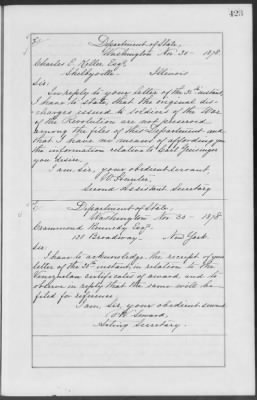 423
Department of State,
Washington Nov. 30 - 1878.
Charles E. Keller Esqr.
Shelbyville Illinois
Sir:
In reply to your letter of the instant,
I have to state, that the original dis-
charges issued to soldiers of the War
of the Revolution are not preserved
among the files of this Department and
that I have no means of affording you
the information relative to Carl
you desire.
I am, Sir, your obedient servant,
W. Hunter,
Second Assistant Secretary
Department of State,
Washington Nov 30 - 1878
Crammond Kennedy Esqr.
120 Broadway. New York.
Sir:
I have to acknowledge the receipt of your
letter of the instant, in relation to the
Venezuelan certificates of award, and to
observe in reply that the same will be
filed for reference.
I am, Sir, your obedient servant
F. W. Seward,
Acting Secretary.